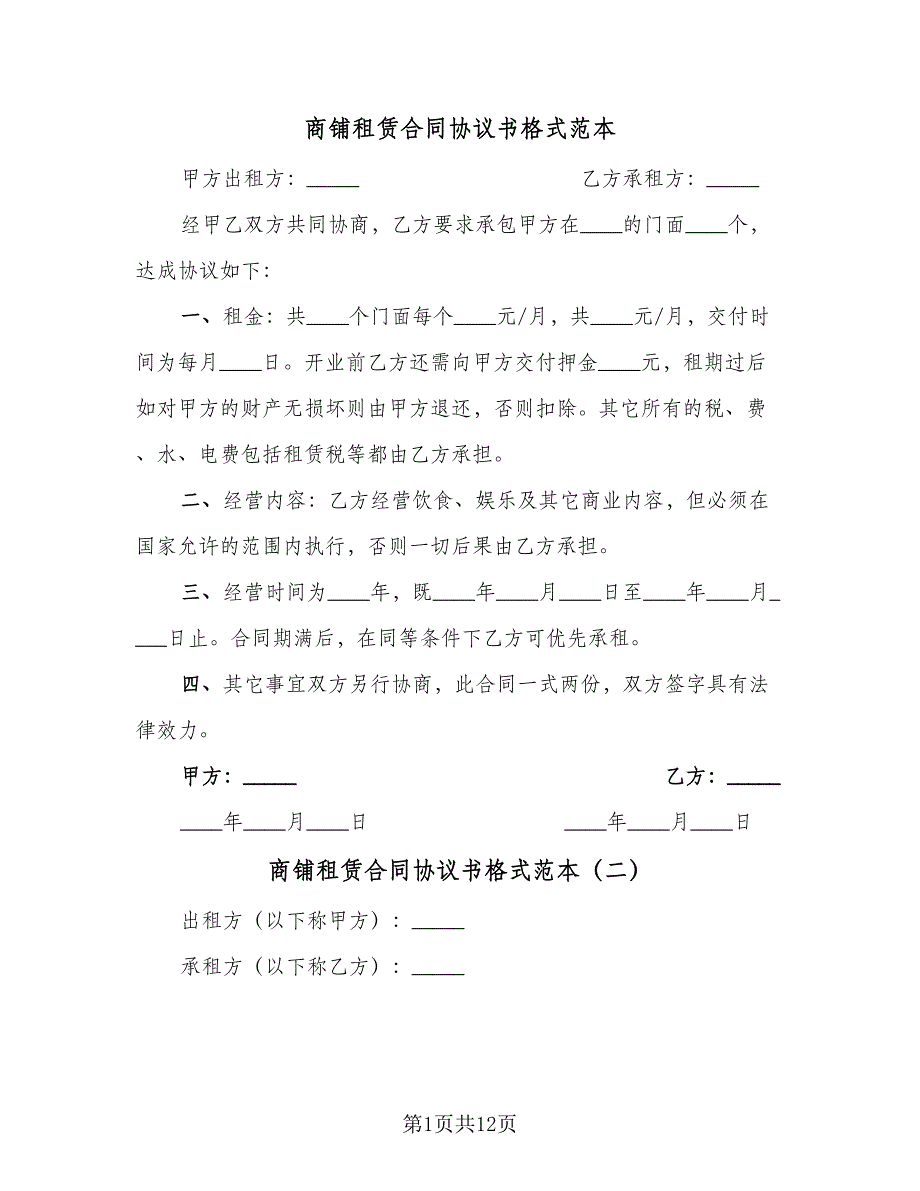 商铺租赁合同协议书格式范本
甲方出租方：_____ 乙方承租方：_____
经甲乙双方共同协商，乙方要求承包甲方在____的门面____个，
达成协议如下：
一、租金：共____个门面每个____元/月，共____元/月，交付时
间为每月____日。开业前乙方还需向甲方交付押金____元，租期过后
如对甲方的财产无损坏则由甲方退还，否则扣除。其它所有的税、费
、水、电费包括租赁税等都由乙方承担。
二、经营内容：乙方经营饮食、娱乐及其它商业内容，但必须在
国家允许的范围内执行，否则一切后果由乙方承担。
三、经营时间为____年，既____年____月____日至____年____月_
___日止。合同期满后，在同等条件下乙方可优先承租。
四、其它事宜双方另行协商，此合同一式两份，双方签字具有法
律效力。
甲方：_____ 乙方：_____
____年____月____日 ____年____月____日
商铺租赁合同协议书格式范本（二）
出租方（以下称甲方）：_____
承租方（以下称乙方）：_____
第1页共12页